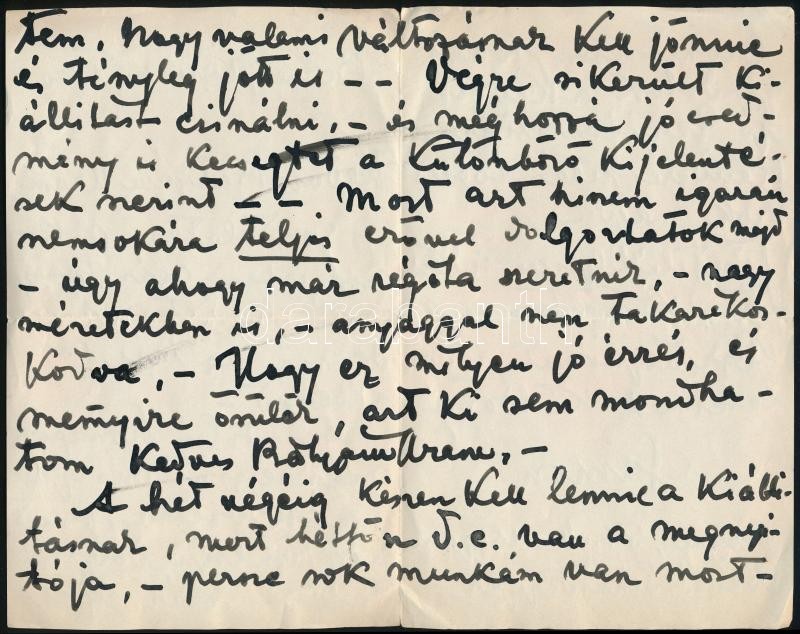 tem. Nagy valami változásnak kell jönnie
és tényleg jött is - - Végre sikerült ki-
állítást csinálni, - és még hozzá jó ered-
mény is kecsegtet a különböző kijelenté-
sek szerint - - Most azt hiszem igazán
nemsokára teljes erővel dolgozhatok majd
- úgy ahogy már régóta szeretnék, - nagy
méretekben is, - anyaggal nem takarékos-
kodva, - Hogy ez milyen jó érzés, és
mennyire örülök, azt ki sem mondha-
tom Kedves Bátyám Uram, -
A hét végéig készen kell lennie a kiállí-
tásnak, mert hétfőn d.e. van a megnyi-
tója, - persze sok munkám van most -
darabanth